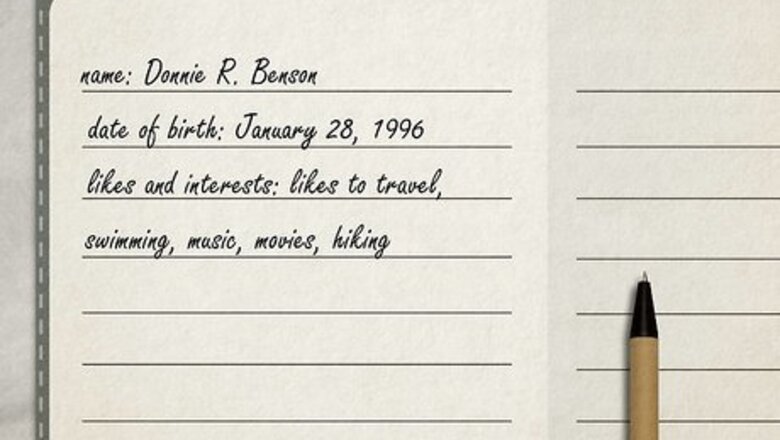 name: Donnie R. Benson
date of birth: January 28, 1996
likes and interests: likes to travel,
swimming, music, movies, hiking